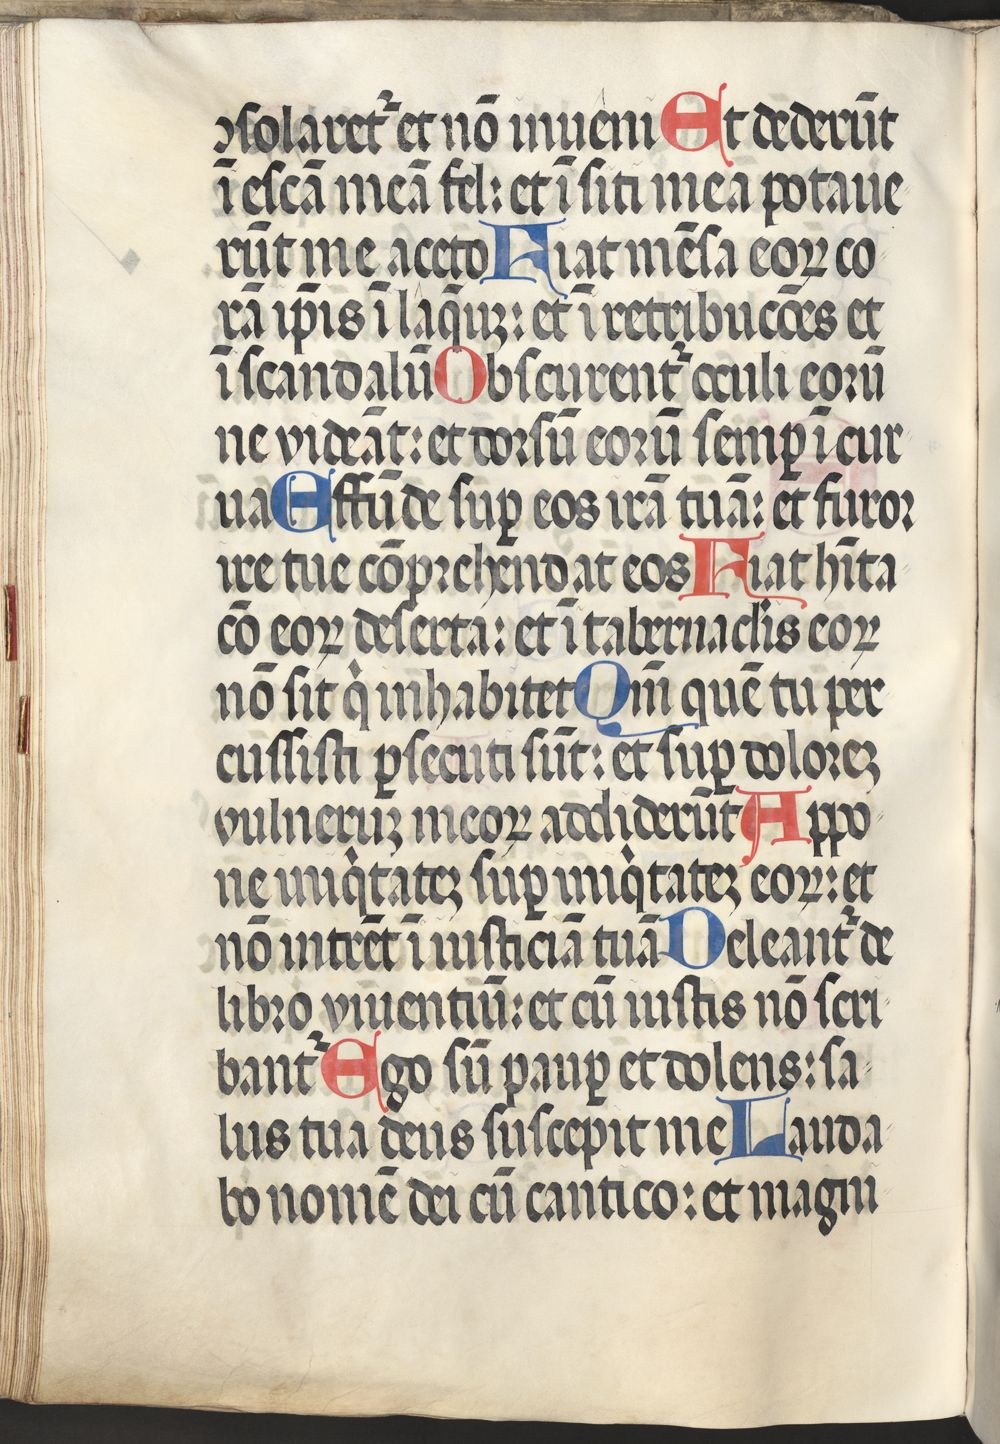 ↄsolaret᷑ et nō inueni Et dederūt
ī escā meā fel: et ī siti mea potaue
rūt me aceto Fiat mēsa eoꝝ co
rā ip̄is ī laq̄uꝫ: et ī retribucōes et
ī scandalū Obscurent᷑ oculi eoꝛū
ne videāt: et doꝛsū eoꝛū semꝑ ī cur
ua Effūde suꝑ eos irā tuā: et furoꝛ
ire tue cōpꝛehendat eos Fiat hīta
cō eoꝝ deserta: et ī tabernaclis eoꝝ
nō sit qͥ inhabitet Qm̄ quē tu per
cussisti ꝑsecuti sūt: et suꝑ doloꝛeꝫ
vulneruꝫ meoꝝ addiderūt Appo
ne iniqͥtateꝫ suꝑ iniqͥtateꝫ eoꝝ: et
nō intrēt ī iusticiā tuā Deleant᷑ de
libꝛo viuentiū: et cū iustis nō scri
bant᷑ Ego sū pauꝑ et dolens: sa
lus tua deus suscepit me Lauda
bo nomē dei cū cantico: et magni